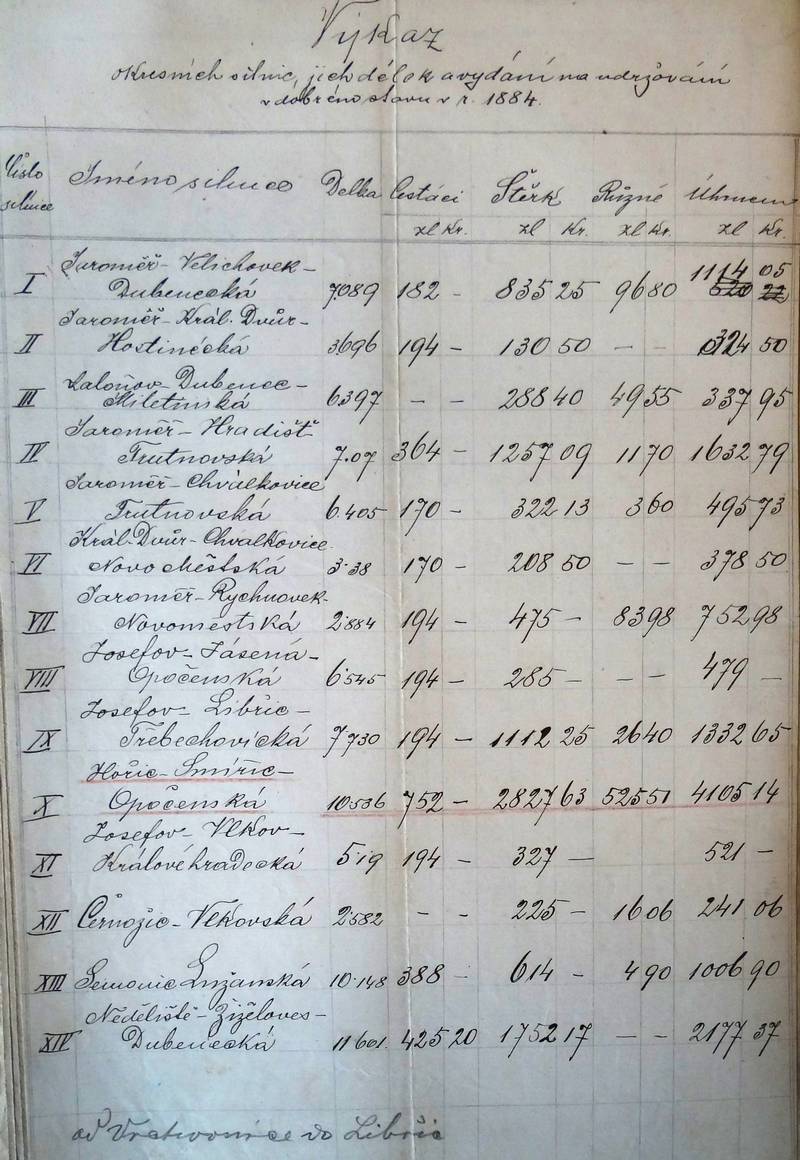 Výkaz
okresních silnic, jich délek a vydání na udržování
v dobrém stavu v r. 1884.
Číslo silnice Jméno silnice Delka Cestáci Štěrk Různé Úhrnem
zl Kr. zl Kr. zl Kr. zl Kr.
Jaroměř - Velichovek -
I Dubenecká 7089 182 - 835 25 96 80 1114 05
Jaroměř - Král. Dvůr -
II Hostinécká 3696 194 - 130 50 - - 324 50
Dubenec -
III Miletínská 6397 - - 288 40 49 55 337 95
Jaroměř - Hradišť
IV Trutnovská 7.07 364 - 1257 09 11 70 1632 79
Jaroměř - Chválkovice
V Trutnovská 6.405 170 - 322 13 3 60 495 73
Král. Dvůr - Chvalkovice
VI Novo Městská 3.38 170 - 208 50 - - 378 50
Jaroměř - Rychnovek -
VII Novoměstská 2.884 194 - 475 - 83 98 752 98
Josefov - Jásená -
VIII Opočenská 6.545 194 - 285 - - - 479 -
Josefov - Librîc -
IX Třebechovická 7.730 194 - 1112 25 26 40 1332 65
Hořic - Smiřic -
X Opočenská 10.536 752 - 2827 63 525 51 4105 14
Josefov - Vlkov -
XI Královéhradecká 5.19 194 - 327 - 521 -
XII Černožic - Vlkovská 2.582 - - 225 - 16 06 241 06
XIII Semonic Lužanská 10.148 388 - 614 - 4 90 1006 90
Neděliště - Žiželoves -
XIV Dubenecká 11 601. 425 20 1752 17 - - 2177 37
do Librîc